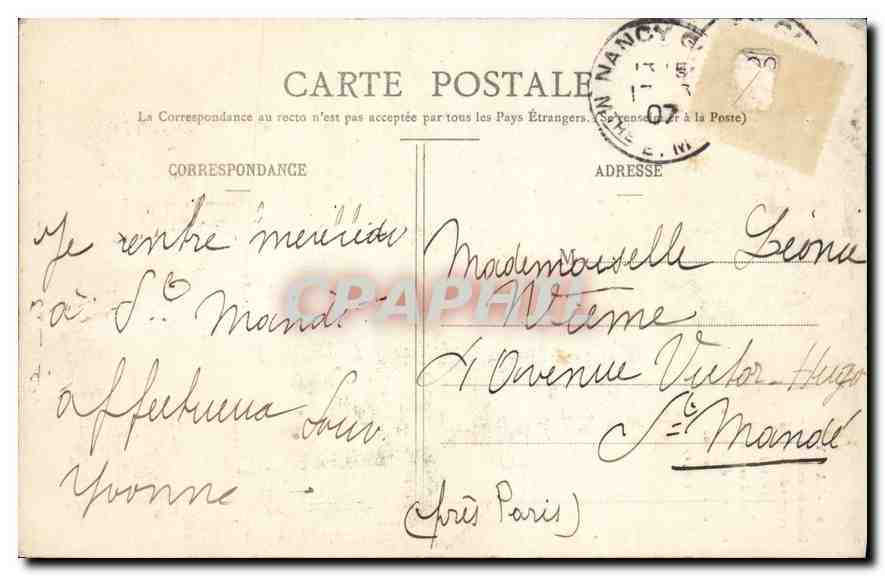 CARTE POSTALE
La Correspondance au recto n'est pas acceptée par tous les Pays Étrangers. (Se renseigner à la Poste)
CORRESPONDANCE
Je rentre mercredi
à St Mandé
affectueux Souv.
Yvonne
ADRESSE
Mademoiselle Léonie
4 Avenue Victor-Hugo
St Mandé
(près Paris)
NANCY
07
MTHE E. M
CPAPHIL